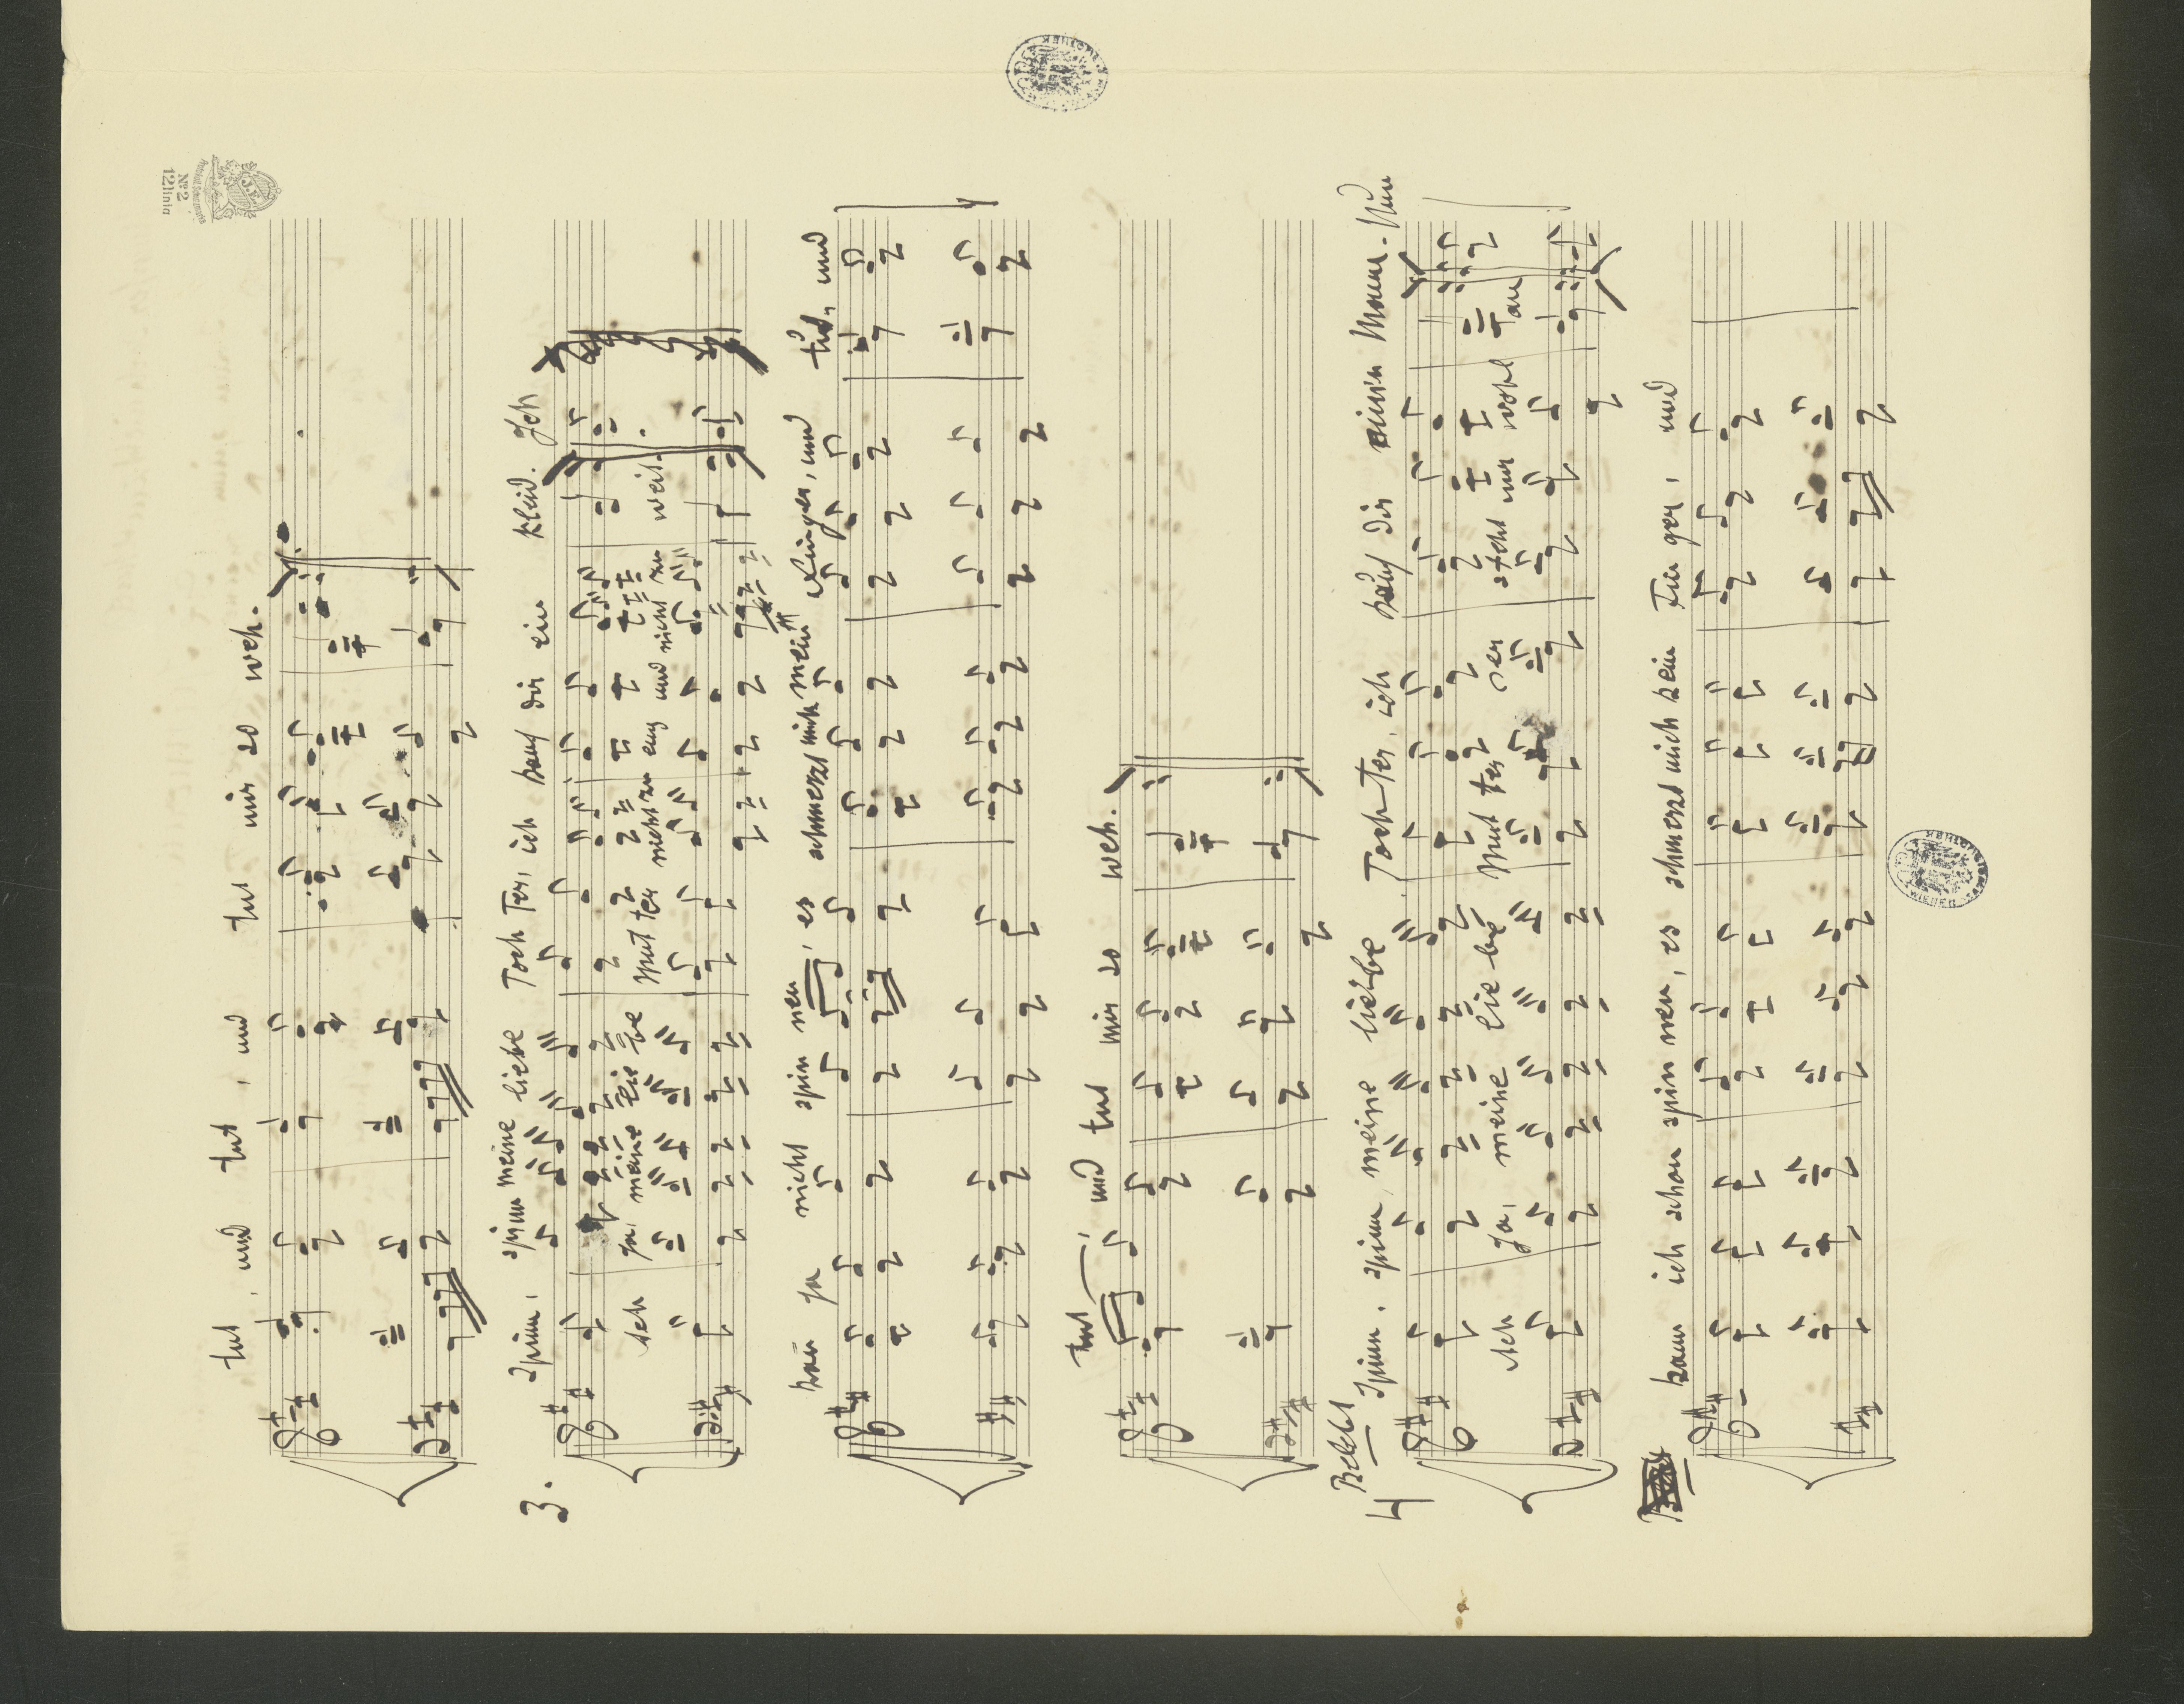 tut, und tut, und tut mir so weh.
3. Spinn, spinn meine liebe Toch ter, ich kauf dir ein Kleid. Ich
Ach ja, meine lie be Mut ter nicht zu eng und nicht zu weit.
kan ja nicht spin nen, es schmerzt mich mein Finger, und tut, und
tut, und tut mir so weh.
4 Belebt
Spinn, spinn, meine liebe Toch-ter, ich kauf dir einen Mann. Nun
Ach Ja, meine lie be Mut ter ser steht mir wohl an
kann ich schon spin nen, es schmerzt mich kein Fin ger, und
No 2
12linig